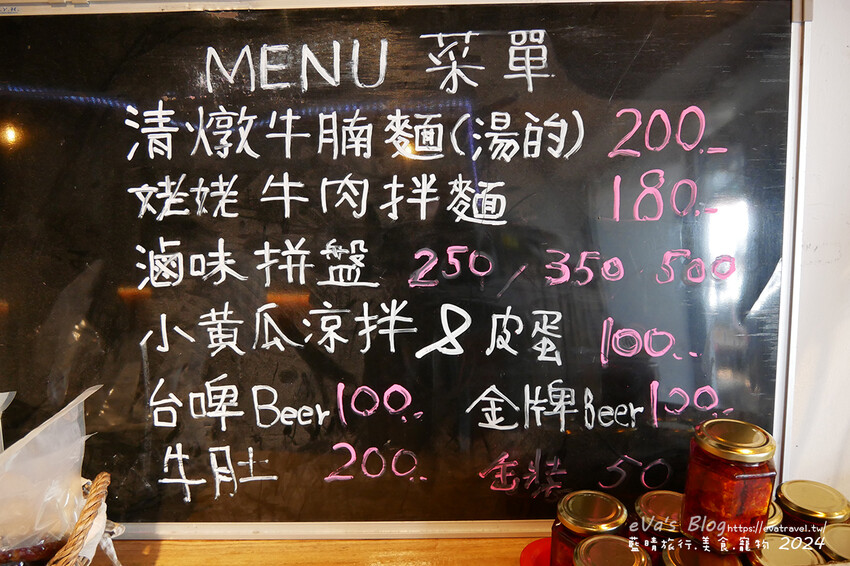 MENU 菜單
清燉牛腩麵(湯的) 200.-
姥姥牛肉拌麵 180.-
滷味拼盤 250 / 350 500
小黃瓜涼拌 & 皮蛋 100.-
台啤Beer 100.- 金牌Beer 100.-
牛肚 200.- 50
eVa's Blog https://evatravel.tw/
藍晴旅行.美食.寵物 2024